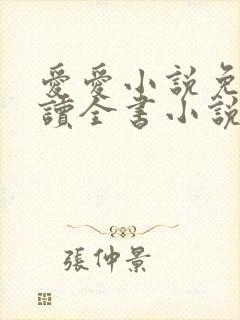 愛愛小説免
讀全書小説
張仲景